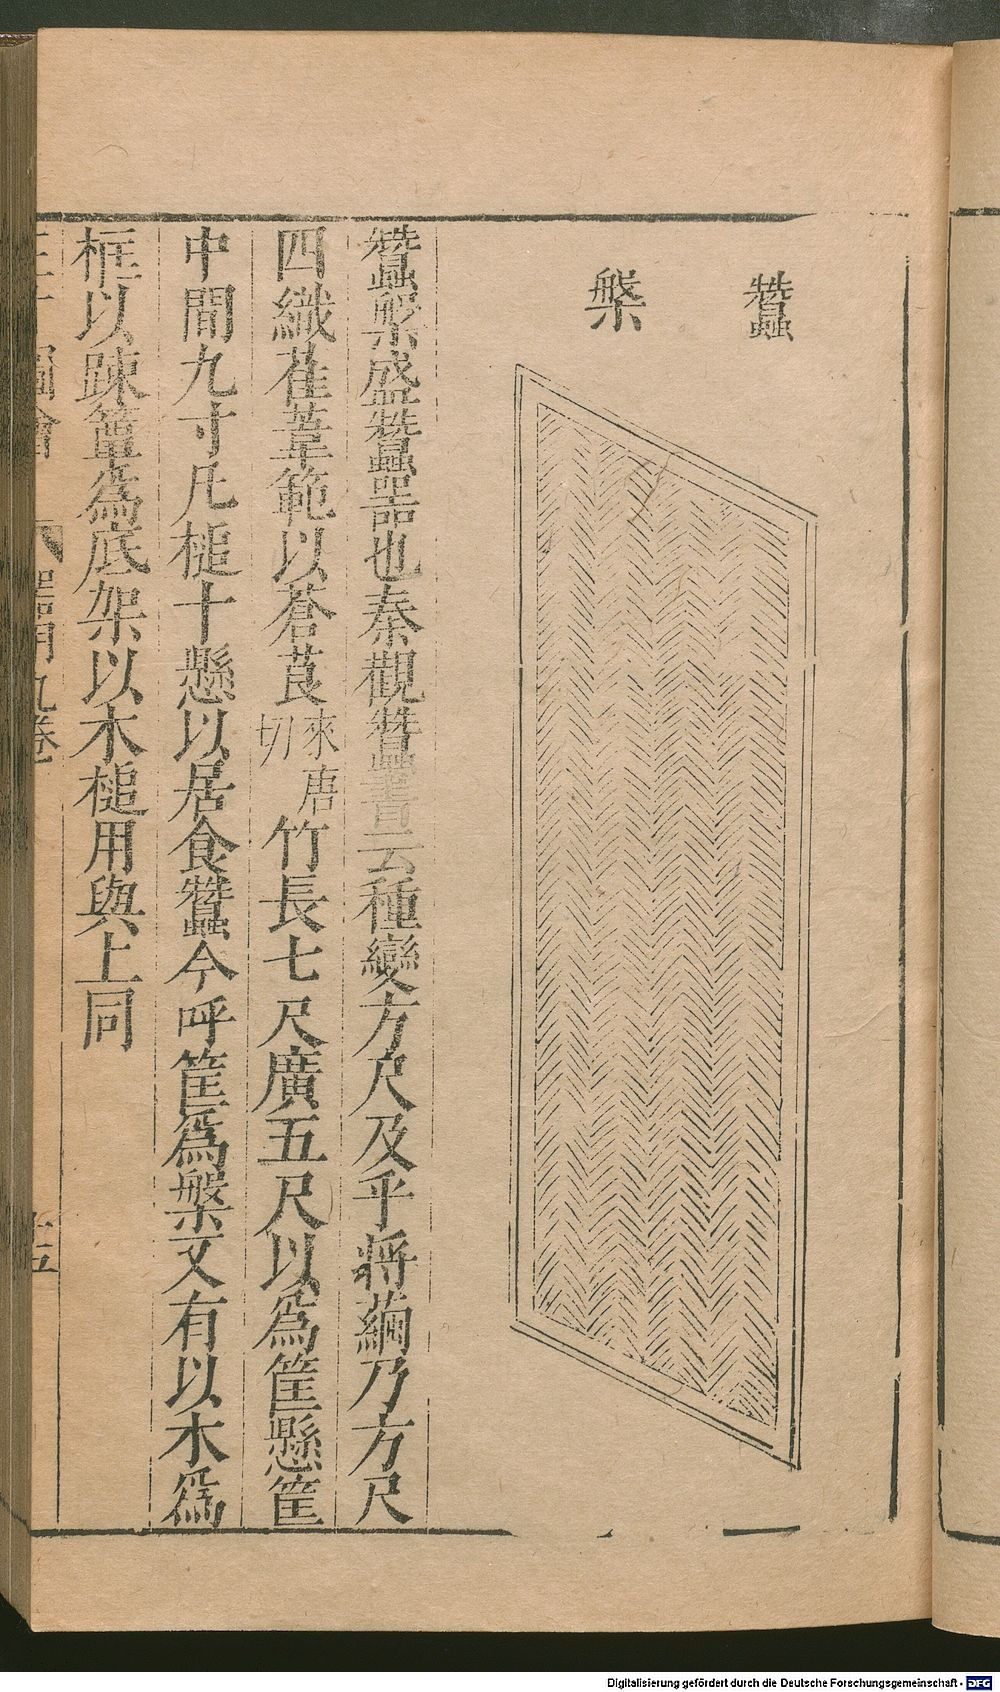 蠶
槃
蠶槃盛蠶器也秦觀蠶書云種變方尺及乎將繭乃方尺
四織萑葦範以蒼莨來唐切竹長七尺廣五尺以為筐懸筐
中間九寸凡槌十懸以居食蠶今呼筐為槃又有以木為
框以踈簟為底架以木槌用與上同
三才圖會 器用九卷 十五
Digitalisierung gefördert durch die Deutsche Forschungsgemeinschaft - DFG